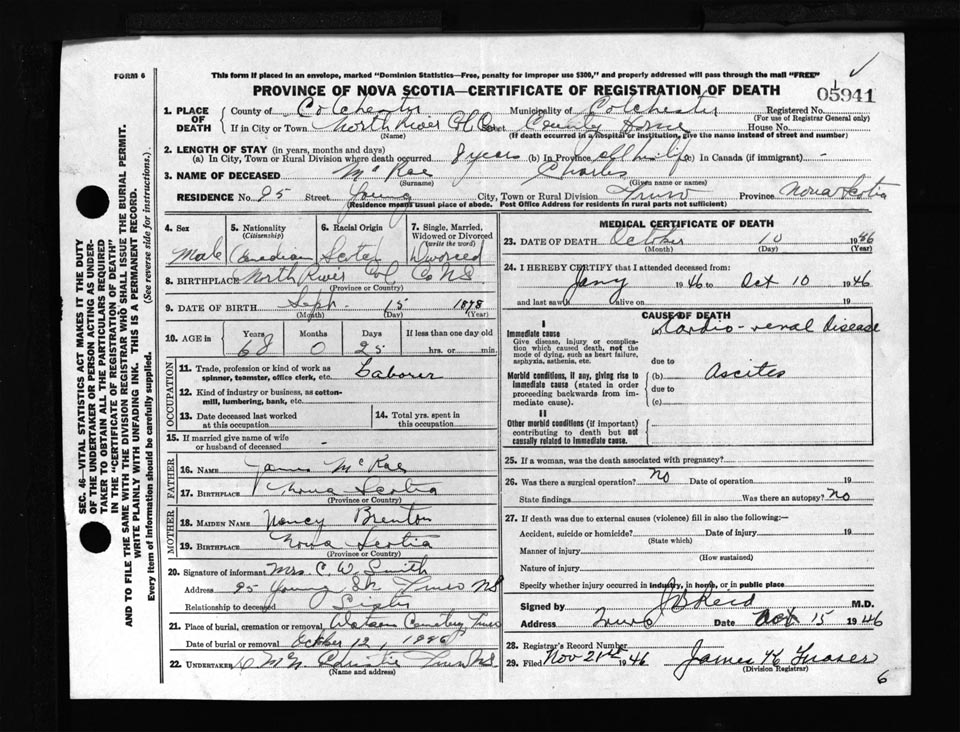 FORM 6
This form if placed in an envelope, marked "Dominion Statistics—Free, penalty for improper use $300," and properly addressed will pass through the mail "FREE"
PROVINCE OF NOVA SCOTIA—CERTIFICATE OF REGISTRATION OF DEATH
05941
1. PLACE OF DEATH County of Colchester Municipality of Colchester Registered No.
(For use of Registrar General only)
If in City or Town North River Col Co. County Home House No.
(Name) (If death occurred in a hospital or institution, give the name instead of street and number)
2. LENGTH OF STAY (in years, months and days)
(a) In City, Town or Rural Division where death occurred 8 years (b) In Province all his life (c) In Canada (if immigrant) -
3. NAME OF DECEASED McRae Charles
(Surname) (Given name or names)
RESIDENCE No. 95 Street Young City, Town or Rural Division Truro Province Nova Scotia
(Residence meant usual place of abode. Post Office Address for residents in rural parts not sufficient)
4. Sex 5. Nationality (Citizenship) 6. Racial Origin 7. Single, Married, Widowed or Divorced (write the word)
Male Canadian Scotch Divorced
8. BIRTHPLACE North River Col Co NS
(Province or Country)
9. DATE OF BIRTH Sept. 15 1878
(Month) (Day) (Year)
10. AGE in Years Months Days If less than one day old
68 0 25 hrs. or min.
OCCUPATION
11. Trade, profession or kind of work as spinner, teamster, office clerk, etc. Laborer
12. Kind of industry or business, as cotton-mill, lumbering, bank, etc.
13. Date deceased last worked at this occupation
14. Total yrs. spent in this occupation
15. If married give name of wife or husband of deceased -
FATHER
16. NAME James McRae
17. BIRTHPLACE Nova Scotia
(Province or Country)
MOTHER
18. MAIDEN NAME Nancy Brenton
19. BIRTHPLACE Nova Scotia
(Province or Country)
20. Signature of informant Mrs. C. W. Smith
Address 95 Young St. Truro NS
Relationship to deceased Sister
21. Place of burial, cremation or removal Watson Cemetery Truro
Date of burial or removal October 12, 1946
22. UNDERTAKER Christie Truro NS
(Name and address)
MEDICAL CERTIFICATE OF DEATH
23. DATE OF DEATH October 10 1946
(Month) (Day) (Year)
24. I HEREBY CERTIFY that I attended deceased from:
Jany 1946 to Oct 10 1946
and last saw h alive on 19
CAUSE OF DEATH
I
Immediate cause Cardio-renal disease
Give disease, injury or complication which caused death, not the mode of dying, such as heart failure, asphyxia, asthenia, etc.
due to
Morbid conditions, if any, giving rise to immediate cause (stated in order proceeding backwards from immediate cause).
(b) Ascites
due to
(c)
II
Other morbid conditions (if important) contributing to death but not causally related to immediate cause.
25. If a woman, was the death associated with pregnancy?
26. Was there a surgical operation? No Date of operation 19
State findings Was there an autopsy? No
27. If death was due to external causes (violence) fill in also the following:—
Accident, suicide or homicide? Date of injury 19
(State which)
Manner of injury
(How sustained)
Nature of injury
Specify whether injury occurred in industry, in home, or in public place
Signed by J B Reid M.D.
Address Truro Date Oct 15 1946
28. Registrar's Record Number
29. Filed Nov 21st 1946 James K Fraser
(Division Registrar)
6
SEC. 46—VITAL STATISTICS ACT MAKES IT THE DUTY
OF THE UNDERTAKER OR PERSON ACTING AS UNDER-
TAKER TO OBTAIN ALL THE PARTICULARS REQUIRED
IN THE "CERTIFICATE OF REGISTRATION OF DEATH"
AND TO FILE THE SAME WITH THE DIVISION REGISTRAR WHO SHALL ISSUE THE BURIAL PERMIT.
WRITE PLAINLY WITH UNFADING INK. THIS IS A PERMANENT RECORD.
Every item of information should be carefully supplied. (See reverse side for instructions.)